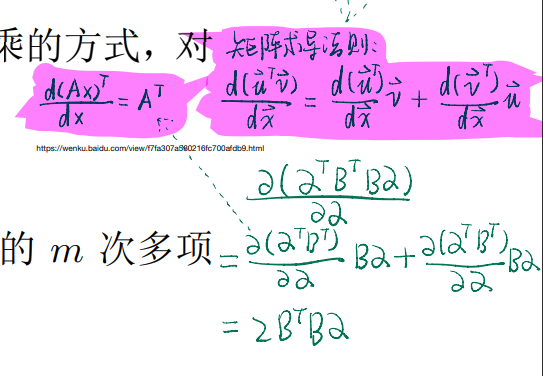 乘的方式，对 矩阵求导法则:
d(Ax)ᵀ/dx = Aᵀ
d(u⃗ᵀv⃗)/dx⃗ = d(u⃗ᵀ)/dx⃗ v⃗ + d(v⃗ᵀ)/dx⃗ u⃗
https://wenku.baidu.com/view/f7fa307a580216fc700afdb9.html
∂(αᵀBᵀBα)/∂α
的 m 次多项
= ∂(αᵀBᵀ)/∂α Bα + ∂(αᵀBᵀ)/∂α Bα
= 2BᵀBα